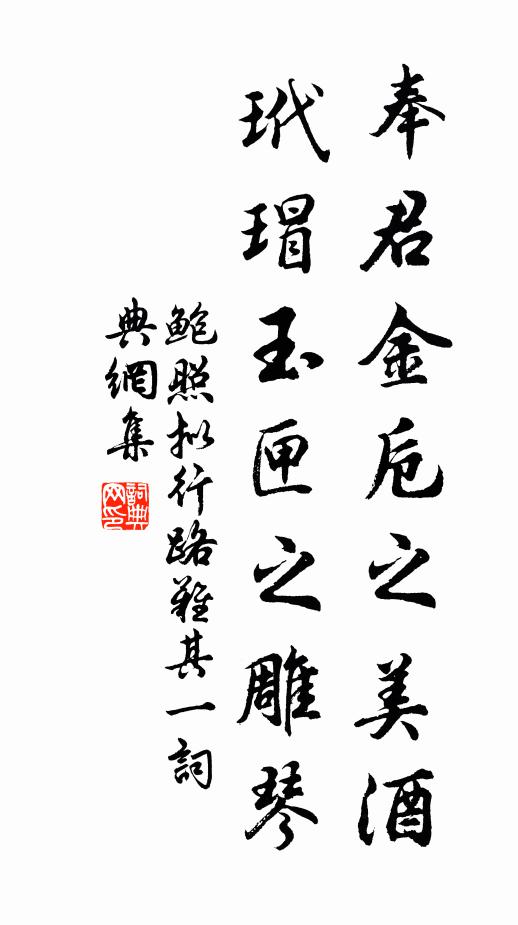 奉君金卮之美酒
玳瑁玉匣之雕琴
鮑照拟行路難其一詞
典網集
詞典网印